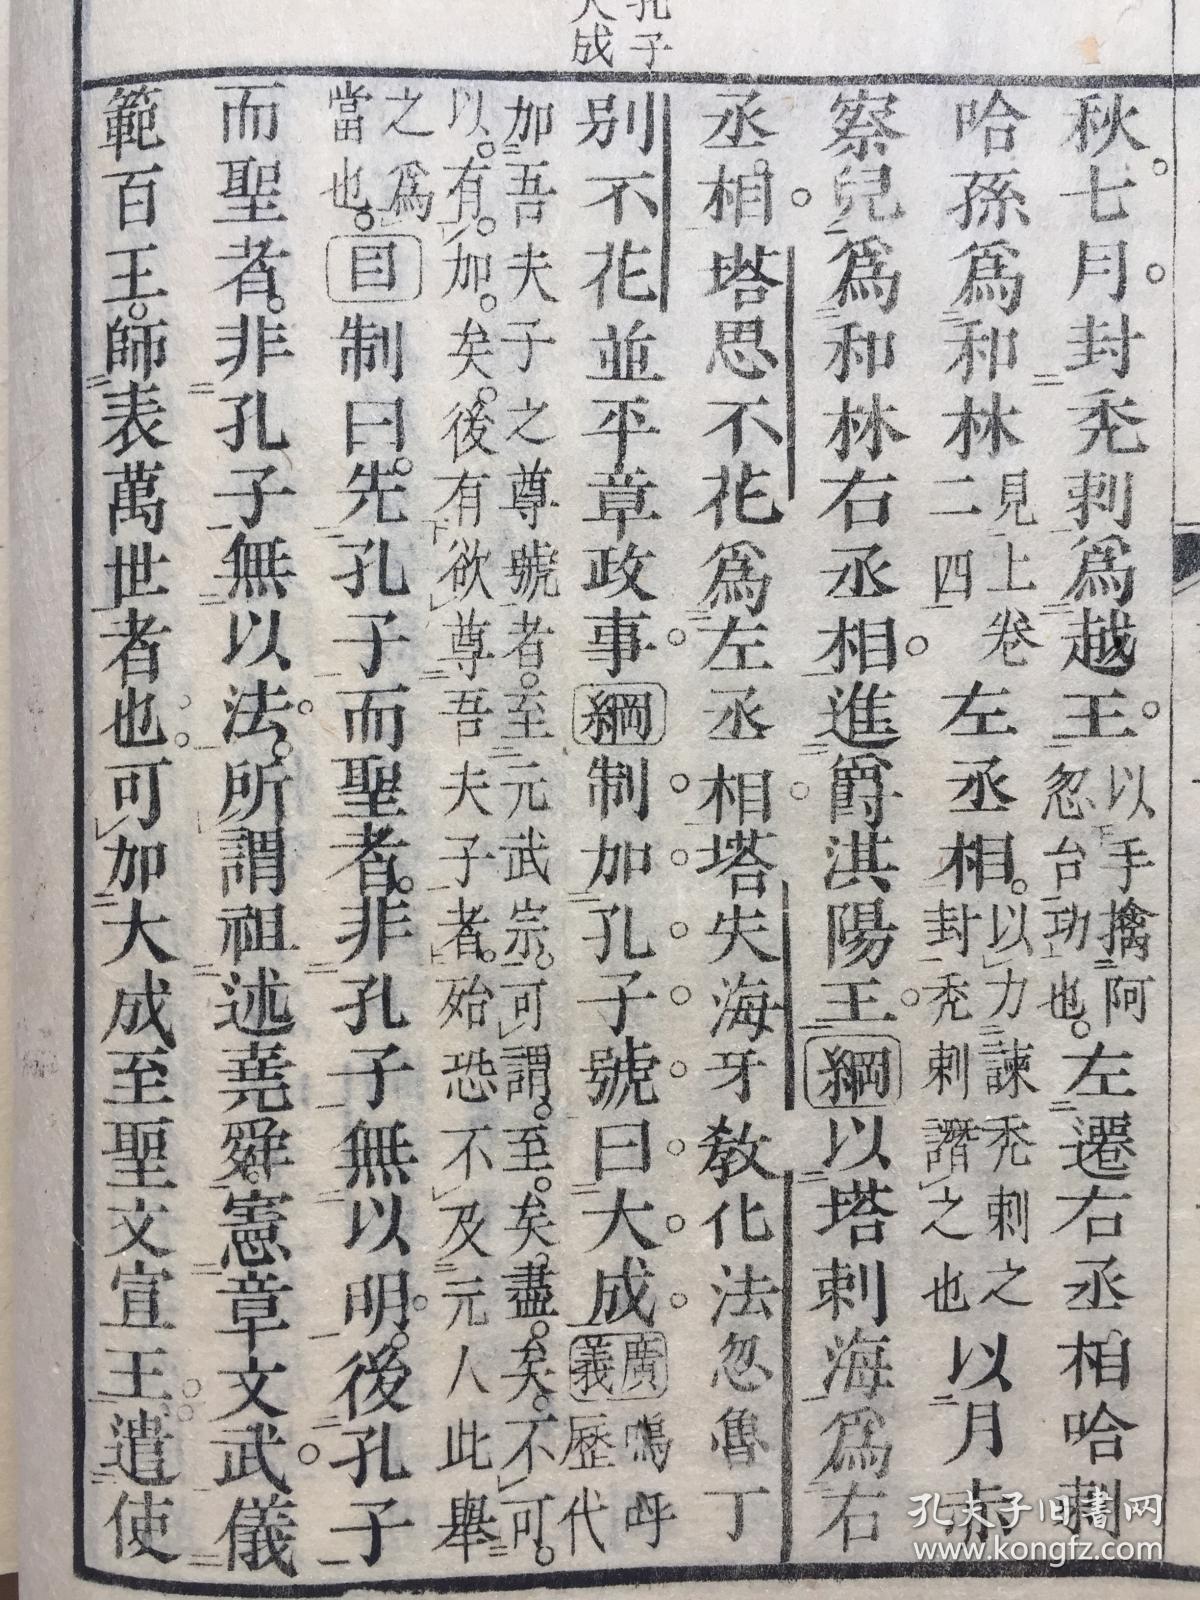 孔子
大成
秋七月封禿剌爲越王以手擒阿忽台功也左遷右丞相哈剌
哈孫爲和林見上卷二四左丞相以力諫禿剌之封禿剌譖之也以月赤
察兒爲和林右丞相進爵淇陽王綱以塔剌海爲右
丞相塔思不花爲左丞相塔失海牙教化法忽魯丁
別不花並平章政事綱制加孔子號曰大成廣義嗚呼歷代
加吾夫子之尊號者至元武宗可謂至矣盡矣不可
以有加矣後有欲尊吾夫子者殆恐不及元人此舉
之爲當也目制曰先孔子而聖者非孔子無以明後孔子
而聖者非孔子無以法所謂祖述堯舜憲章文武儀
範百王師表萬世者也可加大成至聖文宣王遣使
孔夫子旧書网
www.kongfz.com